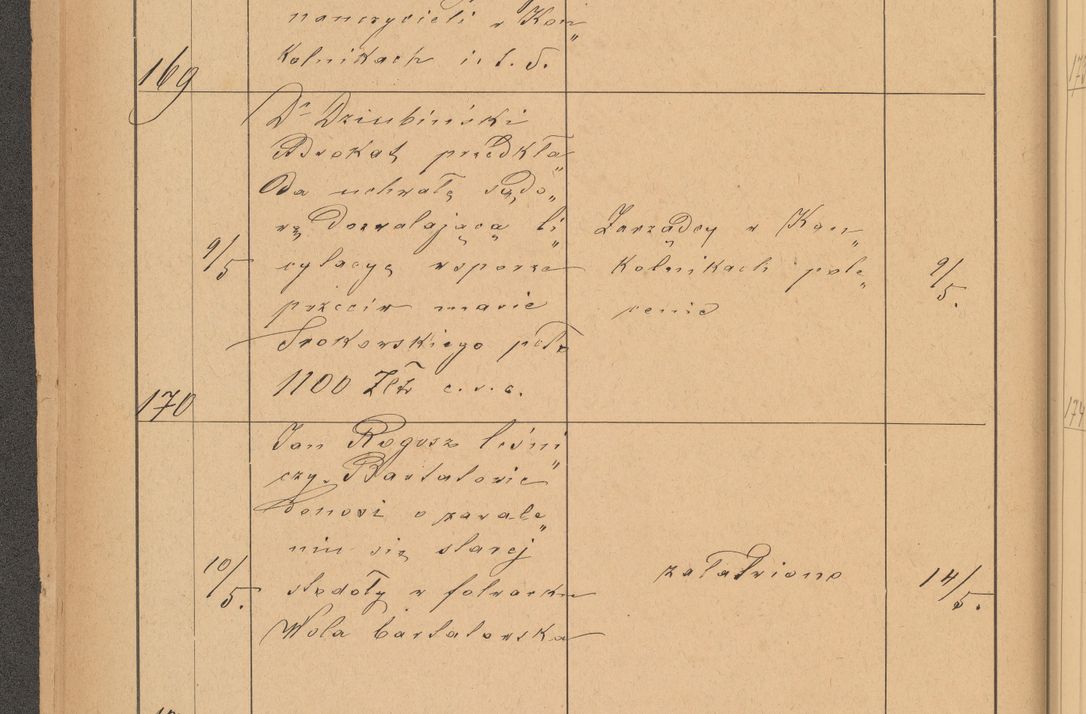 nauczycieli w Kon„
Kolnikach i t. d.
169
Dr Dziubiński
Adwokat przedkła„
da uchwałę sądo„
wą dozwalającą li„
cytacyę w sporze
przeciw masie
Srokowskiego pcto
1100 Złr c. s. c.
9/5
Zarządcy w Kon„
Kolnikach pole„
cenie
9/5.
170
Jan Rogusz leśni„
czy Bartatowie
donosi o zawale„
niu się starej
stodoły w folwarku
Wola bartatowska
10/5.
załatwiono
14/5.
174